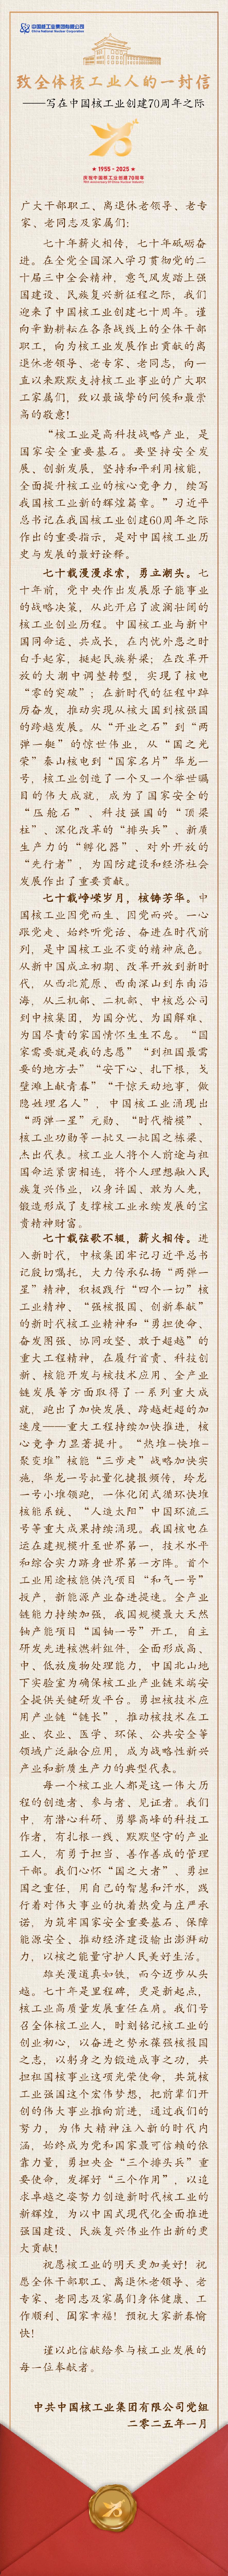 中国核工业集团有限公司
China National Nuclear Corporation
致全体核工业人的一封信
——写在中国核工业创建70周年之际
★ 1955 - 2025 ★
庆祝中国核工业创建70周年
70th Anniversary of China's Nuclear Industry
广大干部职工、离退休老领导、老专
家、老同志及家属们：
七十年薪火相传，七十年砥砺奋
进。在全党全国深入学习贯彻党的二
十届三中全会精神，意气风发踏上强
国建设、民族复兴新征程之际，我们
迎来了中国核工业创建七十周年。谨
向辛勤耕耘在各条战线上的全体干部
职工，向为核工业发展作出贡献的离
退休老领导、老专家、老同志，向一
直以来默默支持核工业事业的广大职
工家属们，致以最诚挚的问候和最崇
高的敬意！
“核工业是高科技战略产业，是
国家安全重要基石。要坚持安全发
展、创新发展，坚持和平利用核能，
全面提升核工业的核心竞争力，续写
我国核工业新的辉煌篇章。”习近平
总书记在我国核工业创建60周年之际
作出的重要指示，是对中国核工业历
史与发展的最好诠释。
七十载漫漫求索，勇立潮头。七
十年前，党中央作出发展原子能事业
的战略决策，从此开启了波澜壮阔的
核工业创业历程。中国核工业与新中
国同命运、共成长，在内忧外患之时
白手起家，挺起民族脊梁；在改革开
放的大潮中调整转型，实现了核电
“零的突破”；在新时代的征程中踔
厉奋发，推动实现从核大国到核强国
的跨越发展。从“开业之石”到“两
弹一艇”的惊世伟业，从“国之光
荣”秦山核电到“国家名片”华龙一
号，核工业创造了一个又一个举世瞩
目的伟大成就，成为了国家安全的
“压舱石”、科技强国的“顶梁
柱”、深化改革的“排头兵”、新质
生产力的“孵化器”、对外开放的
“先行者”，为国防建设和经济社会
发展作出了重要贡献。
七十载峥嵘岁月，核铸芳华。中
国核工业因党而生、因党而兴。一心
跟党走、始终听党话、奋进在时代前
列，是中国核工业不变的精神底色。
从新中国成立初期、改革开放到新时
代，从西北荒原、西南深山到东南沿
海，从三机部、二机部、中核总公司
到中核集团，为国分忧、为国解难、
为国尽责的家国情怀生生不息。“国
家需要就是我的志愿”“到祖国最需
要的地方去”“安下心、扎下根，戈
壁滩上献青春”“干惊天动地事，做
隐姓埋名人”，中国核工业涌现出
“两弹一星”元勋、“时代楷模”、
核工业功勋等一批又一批国之栋梁、
杰出代表。核工业人将个人前途与祖
国命运紧密相连，将个人理想融入民
族复兴伟业，以身许国、敢为人先，
锻造形成了支撑核工业永续发展的宝
贵精神财富。
七十载弦歌不辍，薪火相传。进
入新时代，中核集团牢记习近平总书
记殷切嘱托，大力传承弘扬“两弹一
星”精神，积极践行“四个一切”核
工业精神、“强核报国、创新奉献”
的新时代核工业精神和“勇担使命、
奋发图强、协同攻坚、敢于超越”的
重大工程精神，在履行首责、科技创
新、核能开发与核技术应用、全产业
链发展等方面取得了一系列重大成
就，跑出了加快发展、跨越赶超的加
速度——重大工程持续加快推进，核
心竞争力显著提升。“热堆-快堆-
聚变堆”核能“三步走”战略加快实
施，华龙一号批量化捷报频传，玲龙
一号小堆领跑，一体化闭式循环快堆
核能系统、“人造太阳”中国环流三
号等重大成果持续涌现。我国核电在
运在建规模升至世界第一，技术水平
和综合实力跻身世界第一方阵。首个
工业用途核能供汽项目“和气一号”
投产，新能源产业奋进提速。全产业
链能力持续加强，我国规模最大天然
铀产能项目“国铀一号”开工，自主
研发先进核燃料组件，全面形成高、
中、低放废物处理能力，中国北山地
下实验室为确保核工业产业链末端安
全提供关键研发平台。勇担核技术应
用产业链“链长”，推动核技术在工
业、农业、医学、环保、公共安全等
领域广泛融合应用，成为战略性新兴
产业和新质生产力的典型代表。
每一个核工业人都是这一伟大历
程的创造者、参与者、见证者。我们
中，有潜心科研、勇攀高峰的科技工
作者，有扎根一线、默默坚守的产业
工人，有勇于担当、善作善成的管理
干部。我们心怀“国之大者”、勇担
国之重任，用自己的智慧和汗水，践
行着对伟大事业的执着热爱与庄严承
诺，为筑牢国家安全重要基石、保障
能源安全、推动经济建设输出澎湃动
力，以核之能量守护人民美好生活。
雄关漫道真如铁，而今迈步从头
越。七十年是里程碑，更是新起点，
核工业高质量发展重任在肩。我们号
召全体核工业人，时刻铭记核工业的
创业初心，以奋进之势永葆强核报国
之志，以躬身之为锻造成事之功，共
担祖国核事业这项光荣使命，共筑核
工业强国这个宏伟梦想，把前辈们开
创的伟大事业推向前进，通过我们的
努力，为伟大精神注入新的时代内
涵，始终成为党和国家最可信赖的依
靠力量，勇担央企“三个排头兵”重
要使命，发挥好“三个作用”，以追
求卓越之姿努力创造新时代核工业的
新辉煌，为以中国式现代化全面推进
强国建设、民族复兴伟业作出新的更
大贡献！
祝愿核工业的明天更加美好！祝
愿全体干部职工、离退休老领导、老
专家、老同志及家属们身体健康、工
作顺利、阖家幸福！预祝大家新春愉
快！
谨以此信献给参与核工业发展的
每一位奉献者。
中共中国核工业集团有限公司党组
二零二五年一月